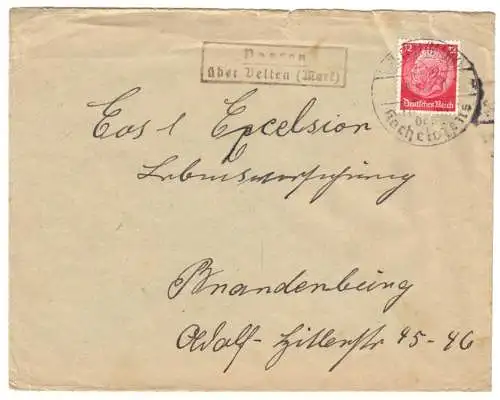 Paaren
über Velten (Mark)
12 12
Deutsches Reich
der
Kachelofens
Eos & Excelsior
Lebensversicherung
Brandenburg
Adolf-Hitlerstr 45-46